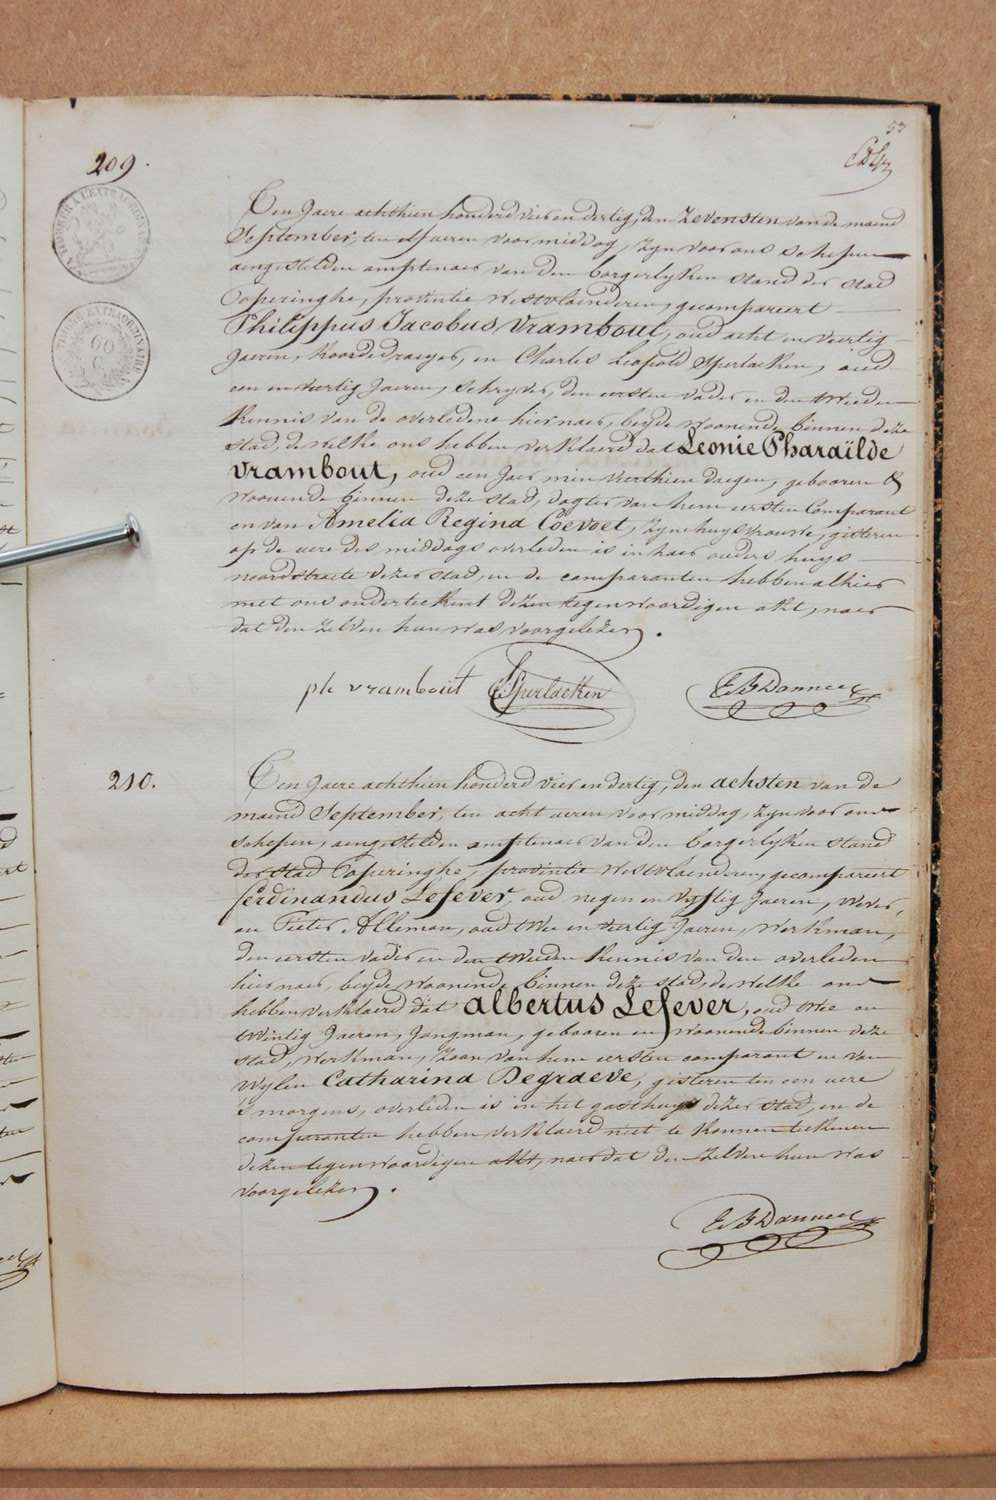 53
209.
TIMBRE EXTRAORDINAIRE
60
Een Jaere achthien honderd vier en dertig, den zevensten van de maend
September, ten elf ueren voormiddag, zyn voor ons schepen
aengestelden amptenaer van den borgerlyken stand der stad
Poperinghe, provintie Westvlaenderen, gecompareert
Philippus Jacobus Vrambout, oud acht en veertig
Jaeren, Koordedraeyer, en Charles Leopold Sperlaeken, oud
een en veertig Jaeren, schryver, den eersten vader en den tweeden
Kennis van de overledene hiernaer, beyde woonende binnen deze
stad, de welke ons hebben verklaerd dat Leonie Pharaïlde
Vrambout, oud een Jaer min veerthien daegen, gebooren &
woonende binnen deze stad, dogter van hem eersten Comparant
en van Amelia Regina Coevoet, zyne huysvrouwe, gisteren
op de uere des middags overleden is in haer ouders huys
noordstraete dezer stad, en de comparanten hebben alhier
met ons onderteekent dezen tegenwoordigen akt, naer
dat den zelven hun was voorgelezen.
ph vrambout C. Sperlaeken
210.
Een Jaere achthien honderd vier en dertig, den achsten van de
maend September, ten acht ueren voormiddag, zyn voor ons
schepen, aengestelden amptenaer van den borgerlyken stand
der stad Poperinghe, provintie Westvlaenderen, gecompareert
Ferdinandus Lefever, oud negen en vyftig Jaeren, wever,
en Pieter Alleman, oud twee en veertig Jaeren, werkman,
den eersten vader en den tweeden Kennis van den overleden
hiernaer, beyde woonende binnen deze stad, de welke ons
hebben verklaerd dat albertus Lefever, oud twee en
twintig Jaeren, Jongman, gebooren en woonende binnen deze
stad, werkman, zoon van hem eersten comparant en van
wylen Catharina Degraeve, gisteren ten een uere
's morgens, overleden is in het gasthuys dezer stad, en de
comparanten hebben verklaerd niet te konnen teekenen
dezen tegenwoordigen akt, naer dat den zelven hun was
voorgelezen.